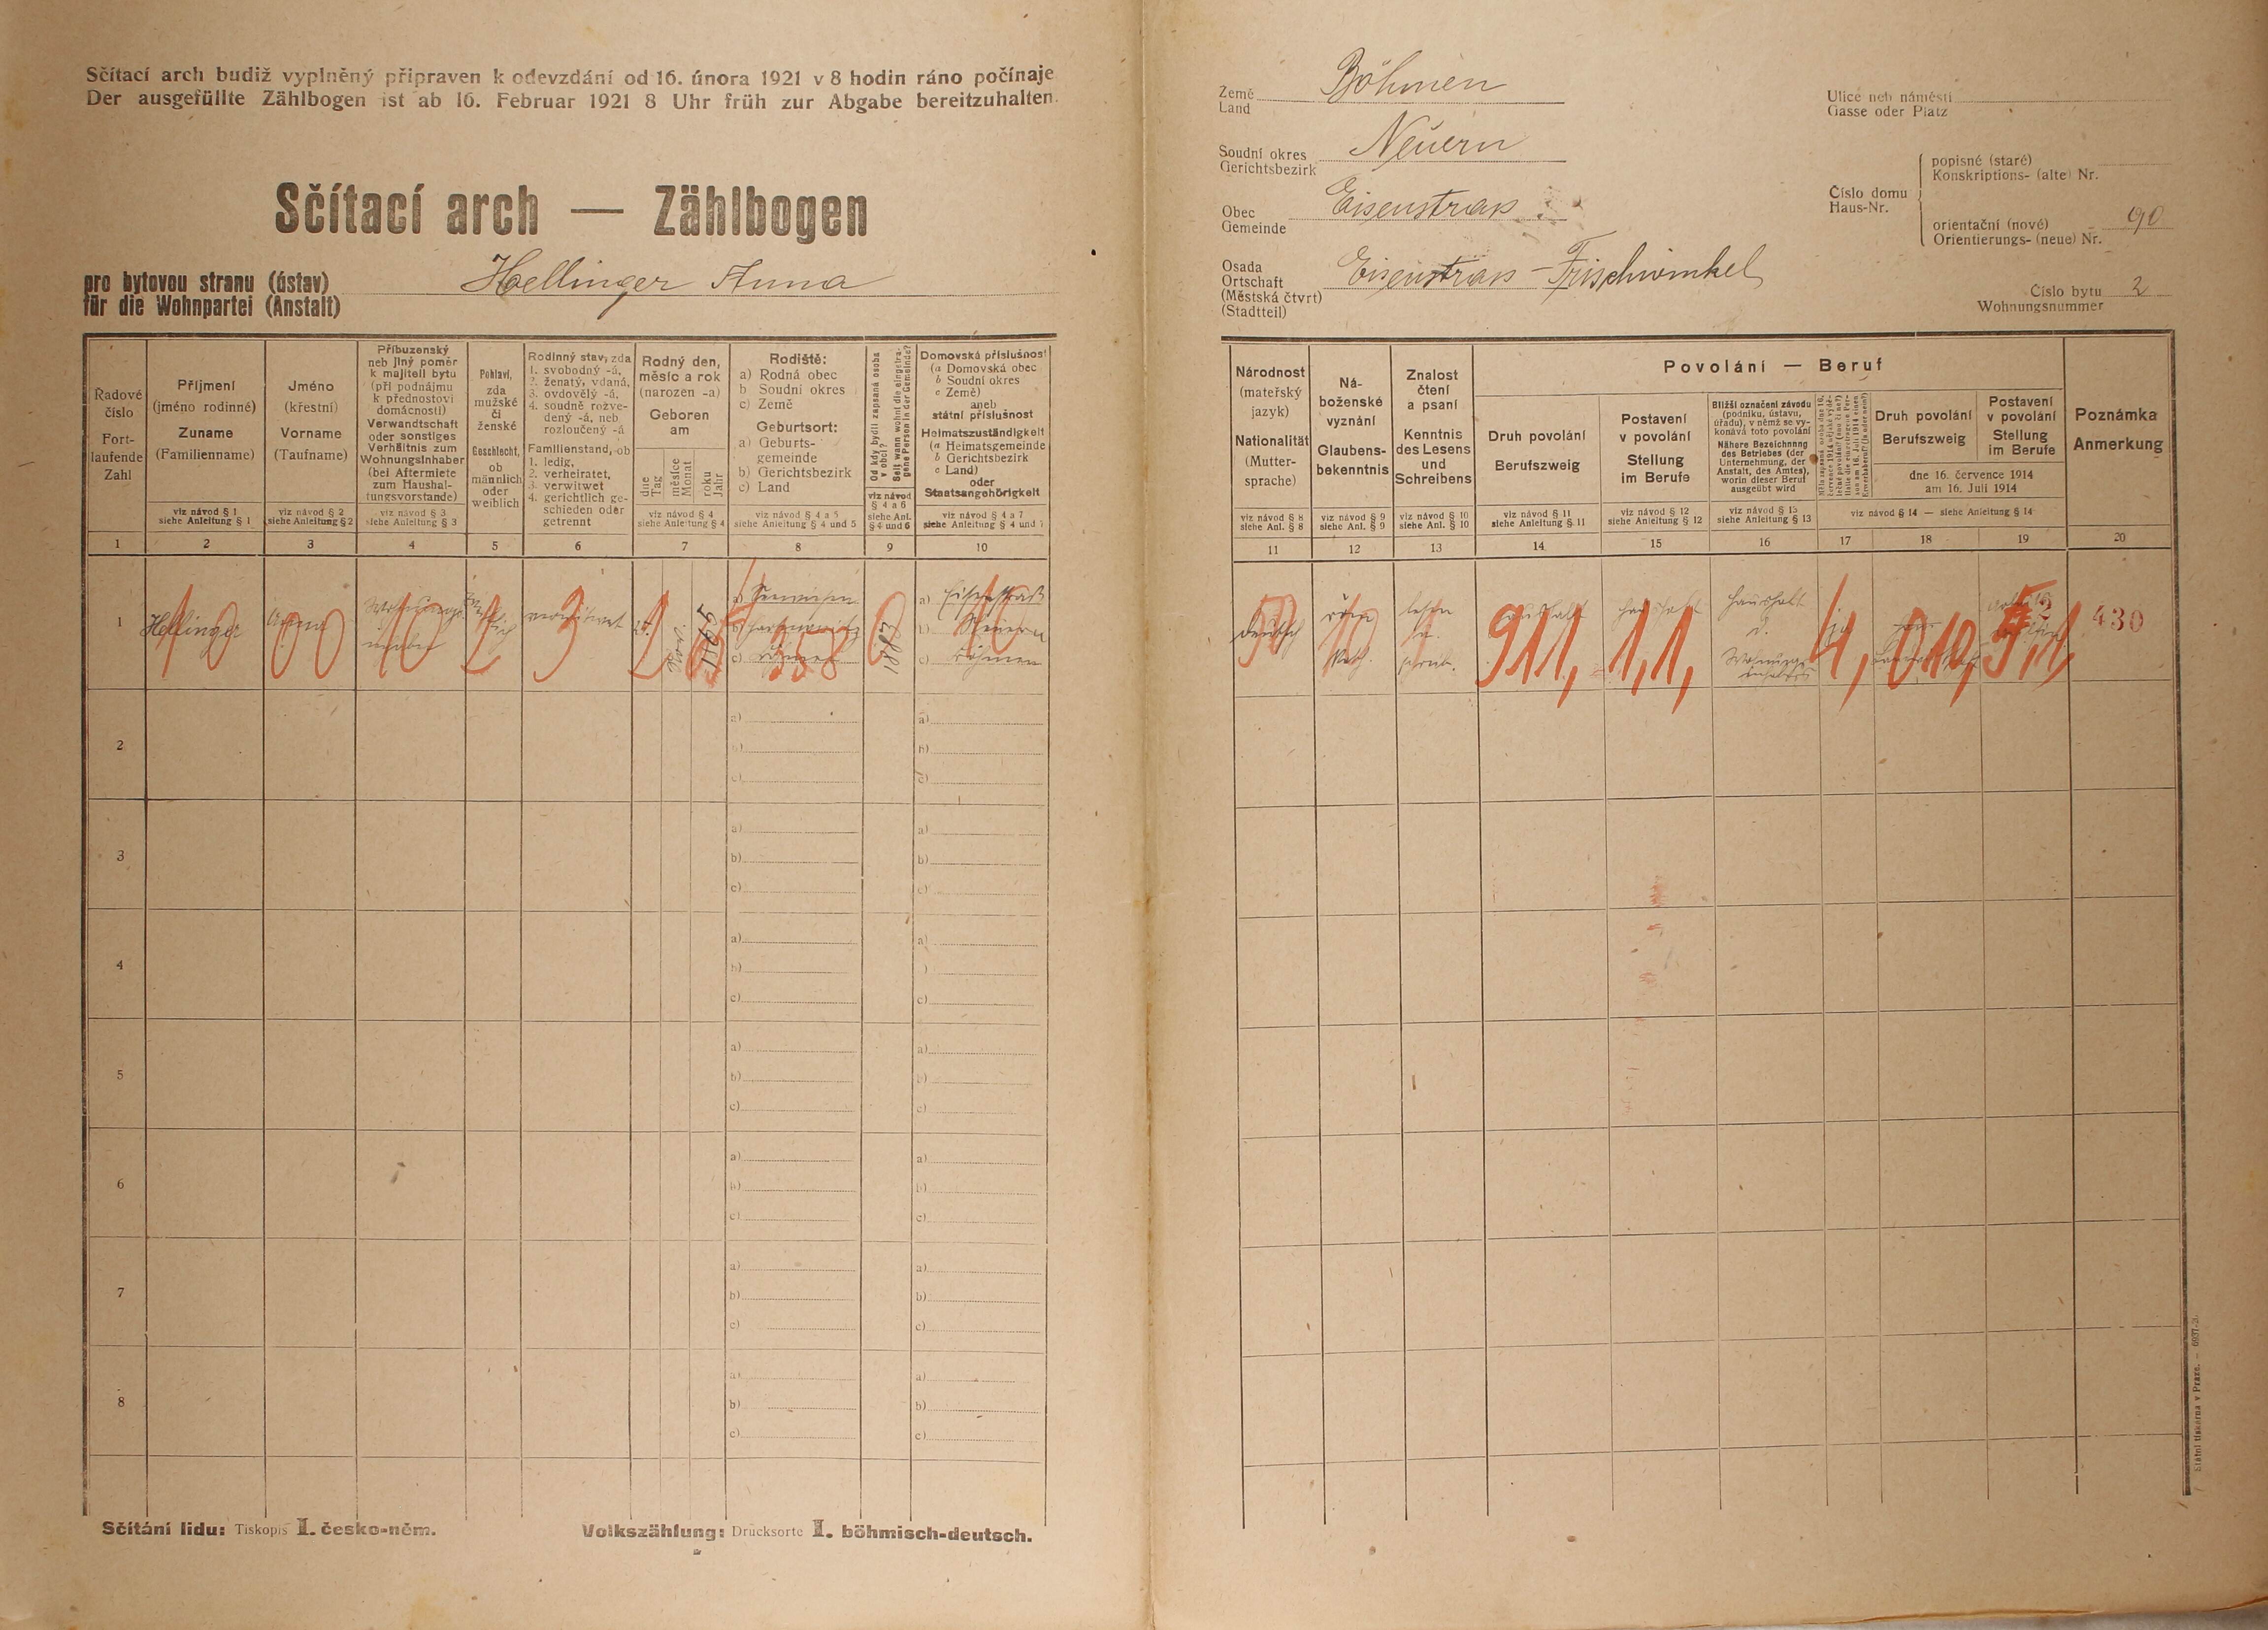 Sčítací arch budiž vyplněný připraven k odevzdání od 16. února 1921 v 8 hodin ráno počínaje
Der ausgefüllte Zählbogen ist ab 16. Februar 1921 8 Uhr früh zur Abgabe bereitzuhalten.
Sčítací arch — Zählbogen
pro bytovou stranu (ústav)
für die Wohnpartei (Anstalt)
Hellinger Anna
Země
Land
Böhmen
Soudní okres
Gerichtsbezirk
Neuern
Obec
Gemeinde
Eisenstrass
Osada
Ortschaft
(Městská čtvrt)
(Stadtteil)
Eisenstrass - Frischwinkel
Ulice neb náměstí
Gasse oder Platz
Číslo domu
Haus-Nr.
popisné (staré)
Konskriptions- (alte) Nr.
orientační (nové)
Orientierungs- (neue) Nr.
90
Číslo bytu
Wohnungsnummer
2
Řadové
číslo
Fort-
laufende
Zahl
1
Příjmení
(jméno rodinné)
Zuname
(Familienname)
viz návod § 1
siehe Anleitung § 1
2
Jméno
(křestní)
Vorname
(Taufname)
viz návod § 2
siehe Anleitung § 2
3
Příbuzenský
neb jiný poměr
k majiteli bytu
(při podnájmu
k přednostovi
domácnosti)
Verwandtschaft
oder sonstiges
Verhältnis zum
Wohnungsinhaber
(bei Aftermiete
zum Haushal-
tungsvorstande)
viz návod § 3
siehe Anleitung § 3
4
Pohlaví,
zda
mužské
či
ženské
Geschlecht,
ob
männlich
oder
weiblich
5
Rodinný stav, zda
1. svobodný -á,
2. ženatý, vdaná,
3. ovdovělý -á,
4. soudně rozve-
dený -á, neb
rozloučený -á
Familienstand, ob
1. ledig,
2. verheiratet,
3. verwitwet
4. gerichtlich ge-
schieden oder
getrennt
6
Rodný den,
měsíc a rok
(narozen -a)
Geboren
am
dne
Tag
měsíce
Monat
roku
Jahr
viz návod § 4
siehe Anleitung § 4
7
Rodiště:
a) Rodná obec
b) Soudní okres
c) Země
Geburtsort:
a) Geburts-
gemeinde
b) Gerichtsbezirk
c) Land
viz návod § 4 a 5
siehe Anleitung § 4 und 5
8
Od kdy bydlí zapsaná osoba
v obci?
Seit wann wohnt die eingetra-
gene Person in der Gemeinde?
viz návod
§ 4 a 6
siehe Anl.
§ 4 und 6
9
Domovská příslušnost
(a Domovská obec
b Soudní okres
c Země)
aneb
státní příslušnost
Heimatszuständigkeit
(a Heimatsgemeinde
b Gerichtsbezirk
c Land)
oder
Staatsangehörigkeit
viz návod § 4 a 7
siehe Anleitung § 4 und 7
10
Národnost
(mateřský
jazyk)
Nationalität
(Mutter-
sprache)
viz návod § 8
siehe Anl. § 8
11
Ná-
boženské
vyznání
Glaubens-
bekenntnis
viz návod § 9
siehe Anl. § 9
12
Znalost
čtení
a psaní
Kenntnis
des Lesens
und
Schreibens
viz návod § 10
siehe Anl. § 10
13
Povolání — Beruf
Druh povolání
Berufszweig
viz návod § 11
siehe Anleitung § 11
14
Postavení
v povolání
Stellung
im Berufe
viz návod § 12
siehe Anleitung § 12
15
Bližší označení závodu
(podniku, ústavu,
úřadu), v němž se vy-
konává toto povolání
Nähere Bezeichnung
des Betriebes (der
Unternehmung, der
Anstalt, des Amtes),
worin dieser Beruf
ausgeübt wird
viz návod § 13
siehe Anleitung § 13
16
17
Druh povolání
Berufszweig
Postavení
v povolání
Stellung
im Berufe
dne 16. července 1914
am 16. Juli 1914
viz návod § 14 — siehe Anleitung § 14
18
19
Poznámka
Anmerkung
20
1
Hellinger
Anna
Wohnungs
weiblich
verwitwet
a)
b)
c) Böhmen
1883
a) Eisenstraß
b) Neuern
c) Böhmen
deutsch
röm.
kath.
lesen
u.
schreib.
Haushalt
Haushalt
Haushalt
u.
Wohnungs
ja
10
00
10
2
3
358
0
10
911,
1,1,
4,
010,
5,1,
430
2
a)
b)
c)
a)
b)
c)
3
a)
b)
c)
a)
b)
c)
4
a)
b)
c)
a)
)
c)
5
a)
b)
c)
a)
b)
c)
6
a)
b)
c)
a)
b)
c)
7
a)
b)
c)
a)
b)
c)
8
a)
b)
c)
a)
b)
c)
Sčítání lidu: Tiskopis I. česko-něm.
Volkszählung: Drucksorte I. böhmisch-deutsch.
Státní tiskárna v Praze.